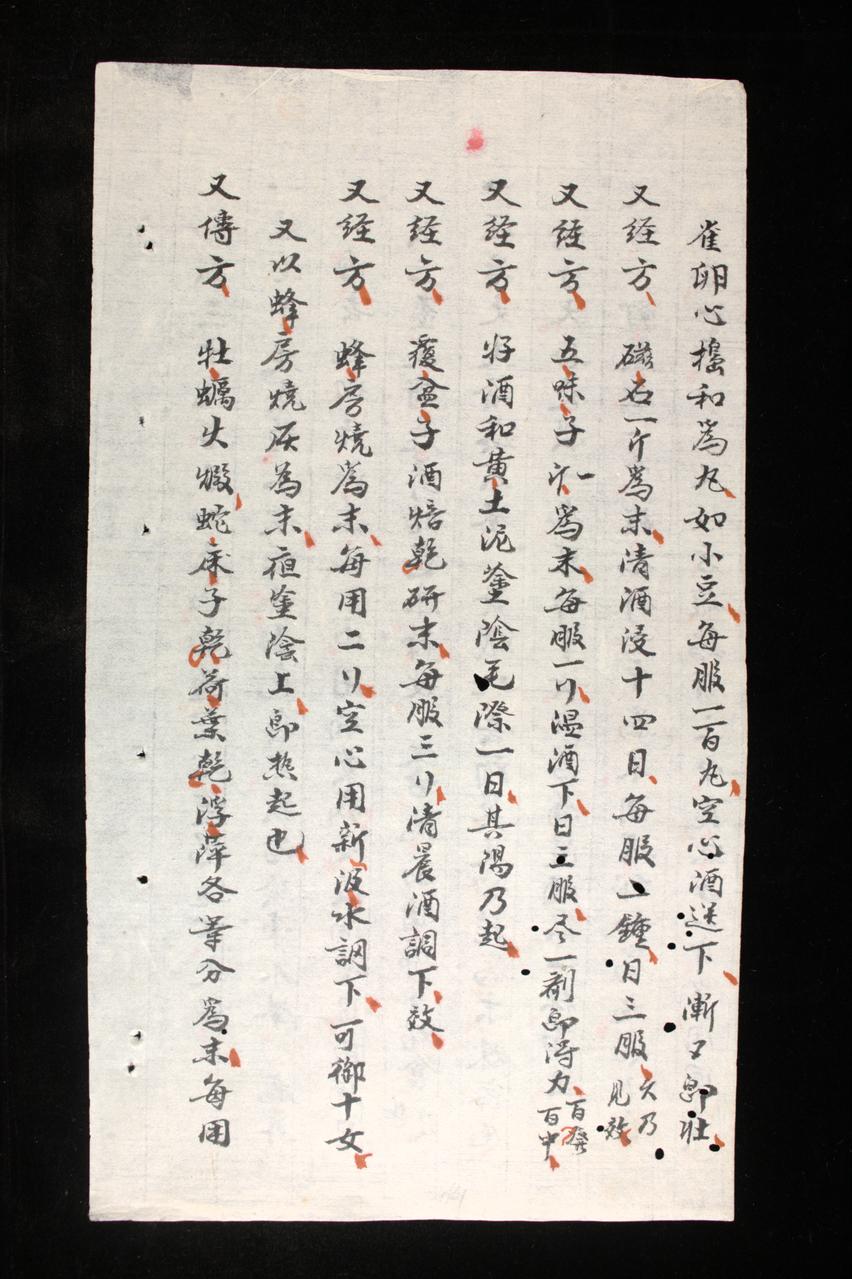 雀卵心搗和為丸如小豆每服一百丸空心酒送下漸々即壯
又経方 磁石一斤為末清酒浸十四日每服一鍾日三服 久乃見效
又経方 五味子一斤為末每服一刂温酒下日三服尽一剤即得力 百發百中
又経方 好酒和黄土泥塗陰毛際一日其陽乃起
又経方 覆盆子酒焙乾研末每服三刂清晨酒調下效
又経方 蜂房燒為末每用二刂空心用新汲水調下可御十女
又以蜂房燒灰為末夜塗陰上即热起也
又傳方 牡蠣火煅蛇床子乾荷葉乾浮萍各等分為末每用